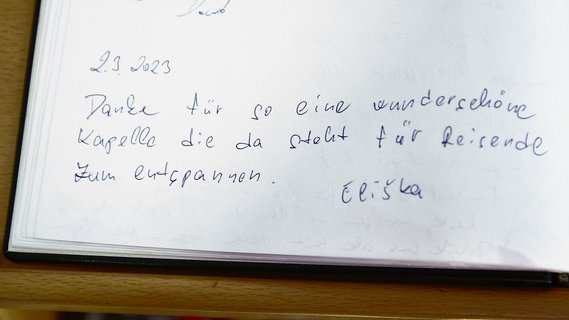 2.3.2023
Danke für so eine wunderschöne
Kapelle die da steht für Reisende
zum entspannen.
Eliška